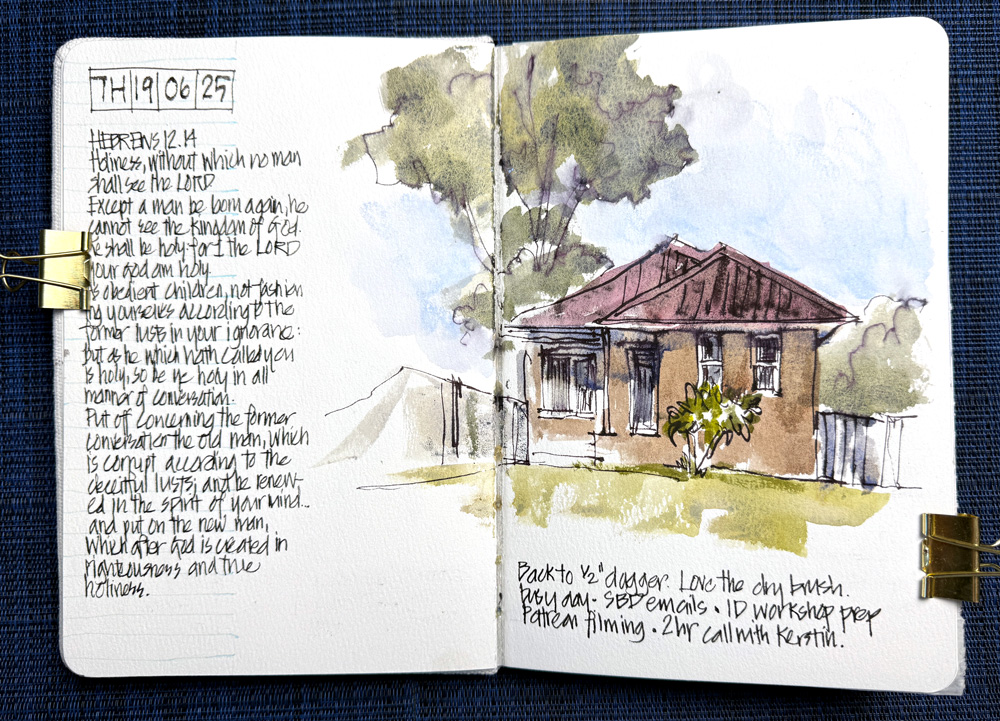 TH 19 06 25
HEBREWS 12.14
Holiness, without which no man
shall see the LORD
Except a man be born again, he
cannot see the kingdom of God.
Ye shall be holy for I the LORD
your God am holy.
As obedient children, not fashion
ing yourselves according to the
former lusts in your ignorance:
but as he which hath called you
is holy, so be ye holy in all
manner of conversation.
Put off concerning the former
conversation the old man, which
is corrupt according to the
deceitful lusts; and be renew-
ed in the spirit of your mind...
and put on the new man,
which after God is created in
righteousness and true
holiness.
Back to 1/2" dagger. Love the dry brush.
busy day - SBD emails • ID workshop prep
Patreon filming • 2hr call with Kerstin.